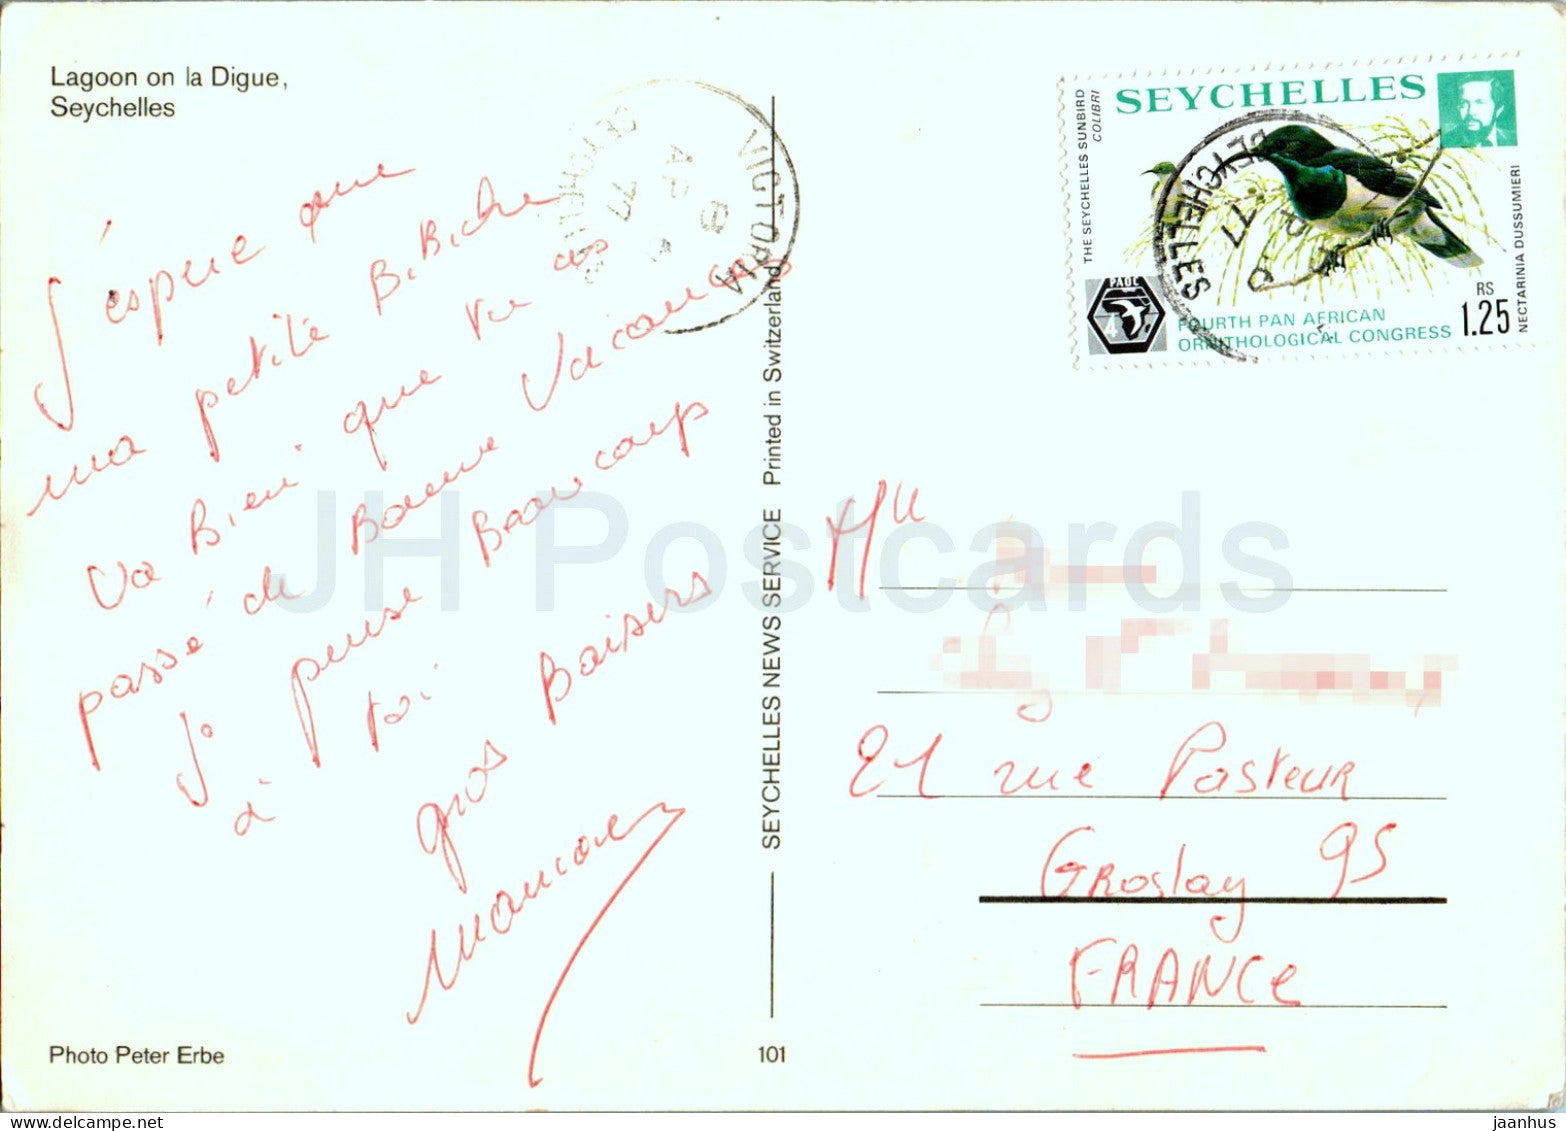 Lagoon on la Digue,
Seychelles
J'espère que
ma petite Bibiche
va Bien que tu as
passé de Bonne Vacances
Je pense Beaucoup
à toi
gros Baisers
Photo Peter Erbe
SEYCHELLES NEWS SERVICE Printed in Switzerland
101
VICTORIA
AP
77
SEYCHELLES
SEYCHELLES
THE SEYCHELLES SUNBIRD
COLIBRI
NECTARINIA DUSSUMIERI
PAOC
4
FOURTH PAN AFRICAN
ORNITHOLOGICAL CONGRESS
RS
1.25
SEYCHELLES
77
Mlle
21 rue Pasteur
Groslay 95
FRANCE
JH Postcards
jaanhus